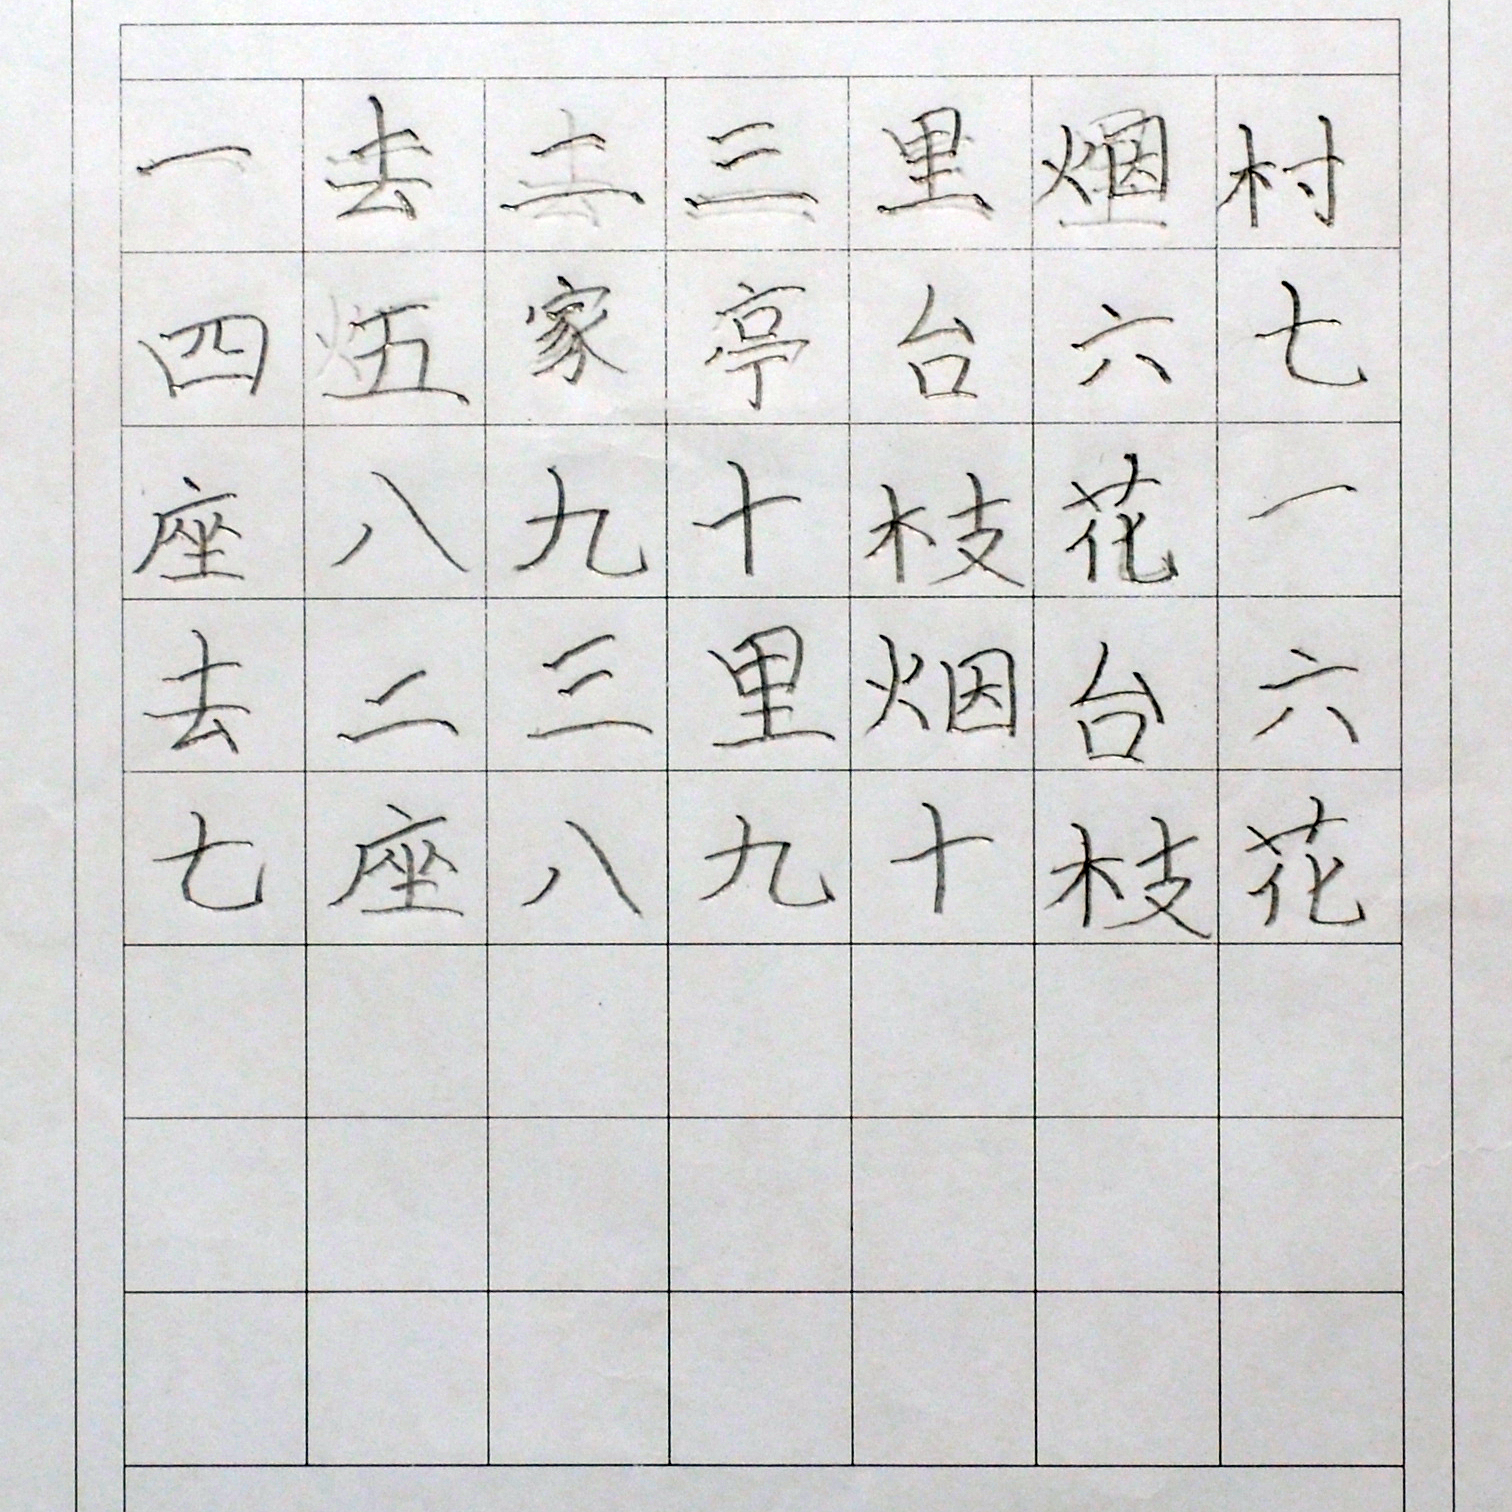 一去二三里烟村
四五家亭台六七
座八九十枝花一
去二三里烟台六
七座八九十枝花